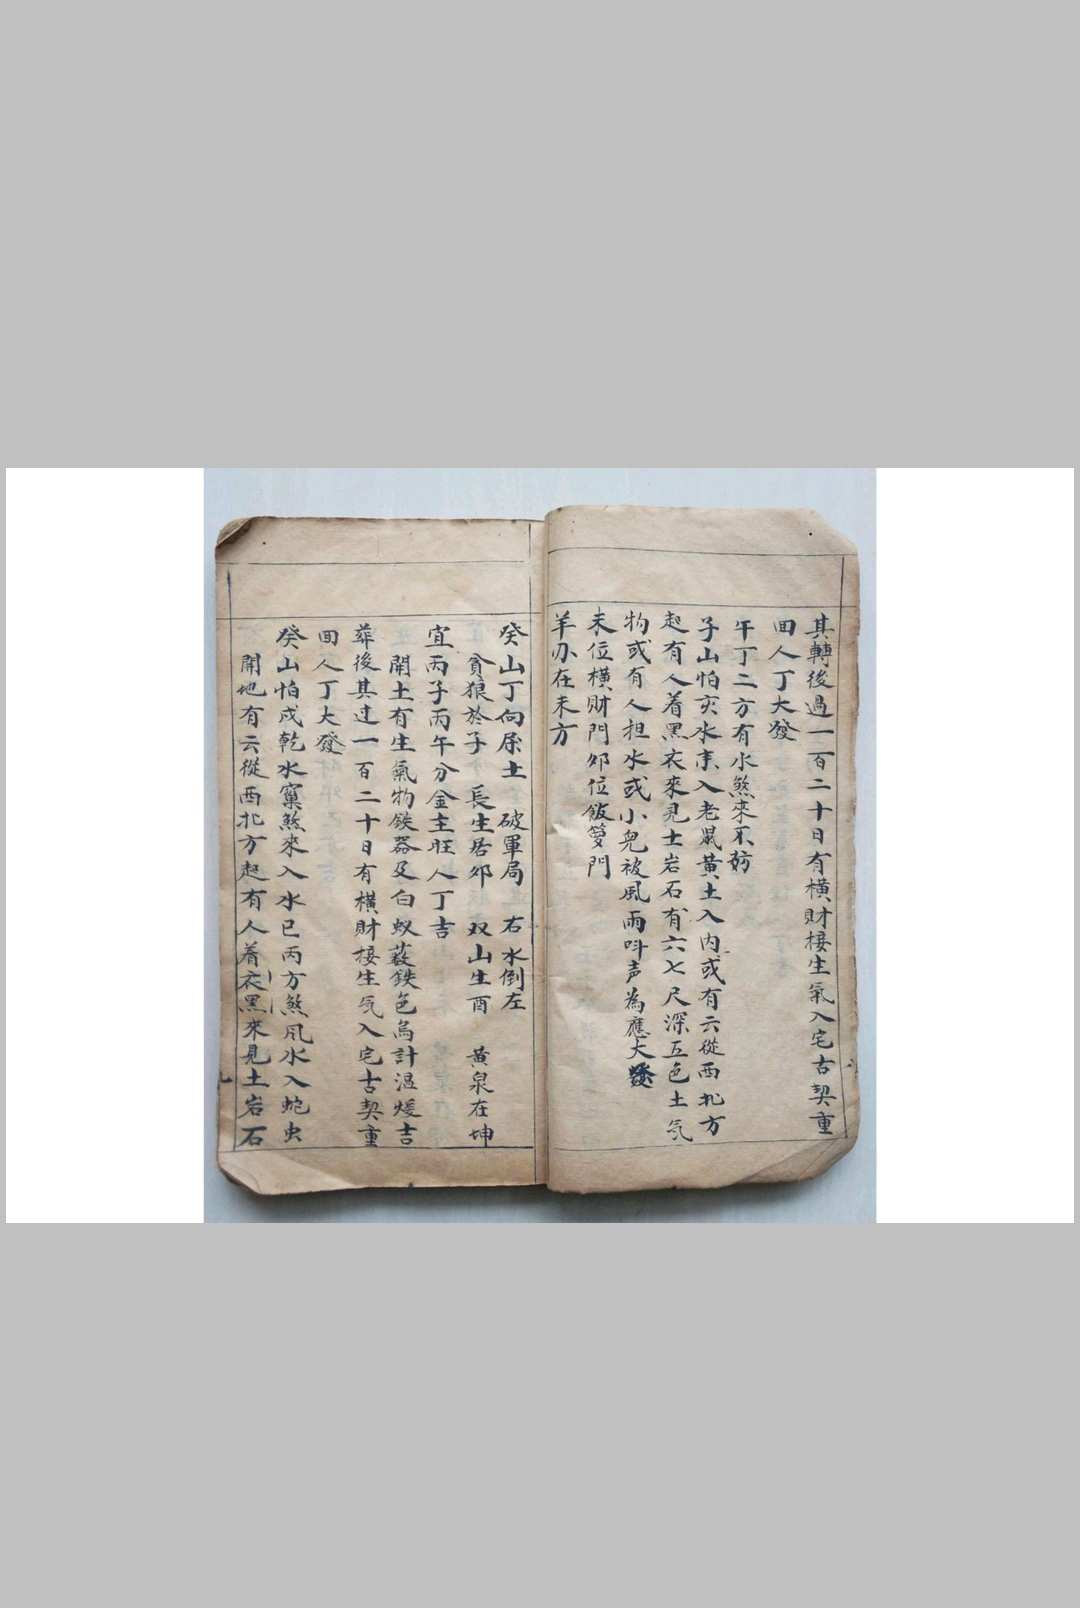 其轉後過一百二十日有橫財接生氣入宅古契重
田人丁大發
午丁二方有水煞來不妨
子山怕亥水來入老鼠黃土入内或有云從西北方
起有人着黑衣來見土岩石有六七尺深五色土気
物或有人担水或小兒被風雨呌声為應大發
未位橫財門卯位飯箩門
羊刃在未方
癸山丁向属土 破軍局 右水倒左
貪狼於子 長生居卯 双山生酉 黃泉在坤
宜丙子丙午分金主旺人丁吉
開土有生氣物鉄器及白蚁蔱鉄色為計温煖吉
葬後其过一百二十日有橫財接生気入宅古契重
田人丁大發
癸山怕戍乾水窠煞來入水巳丙方煞風水入蛇虫
開地有云從西北方起有人着衣黑來見土岩石